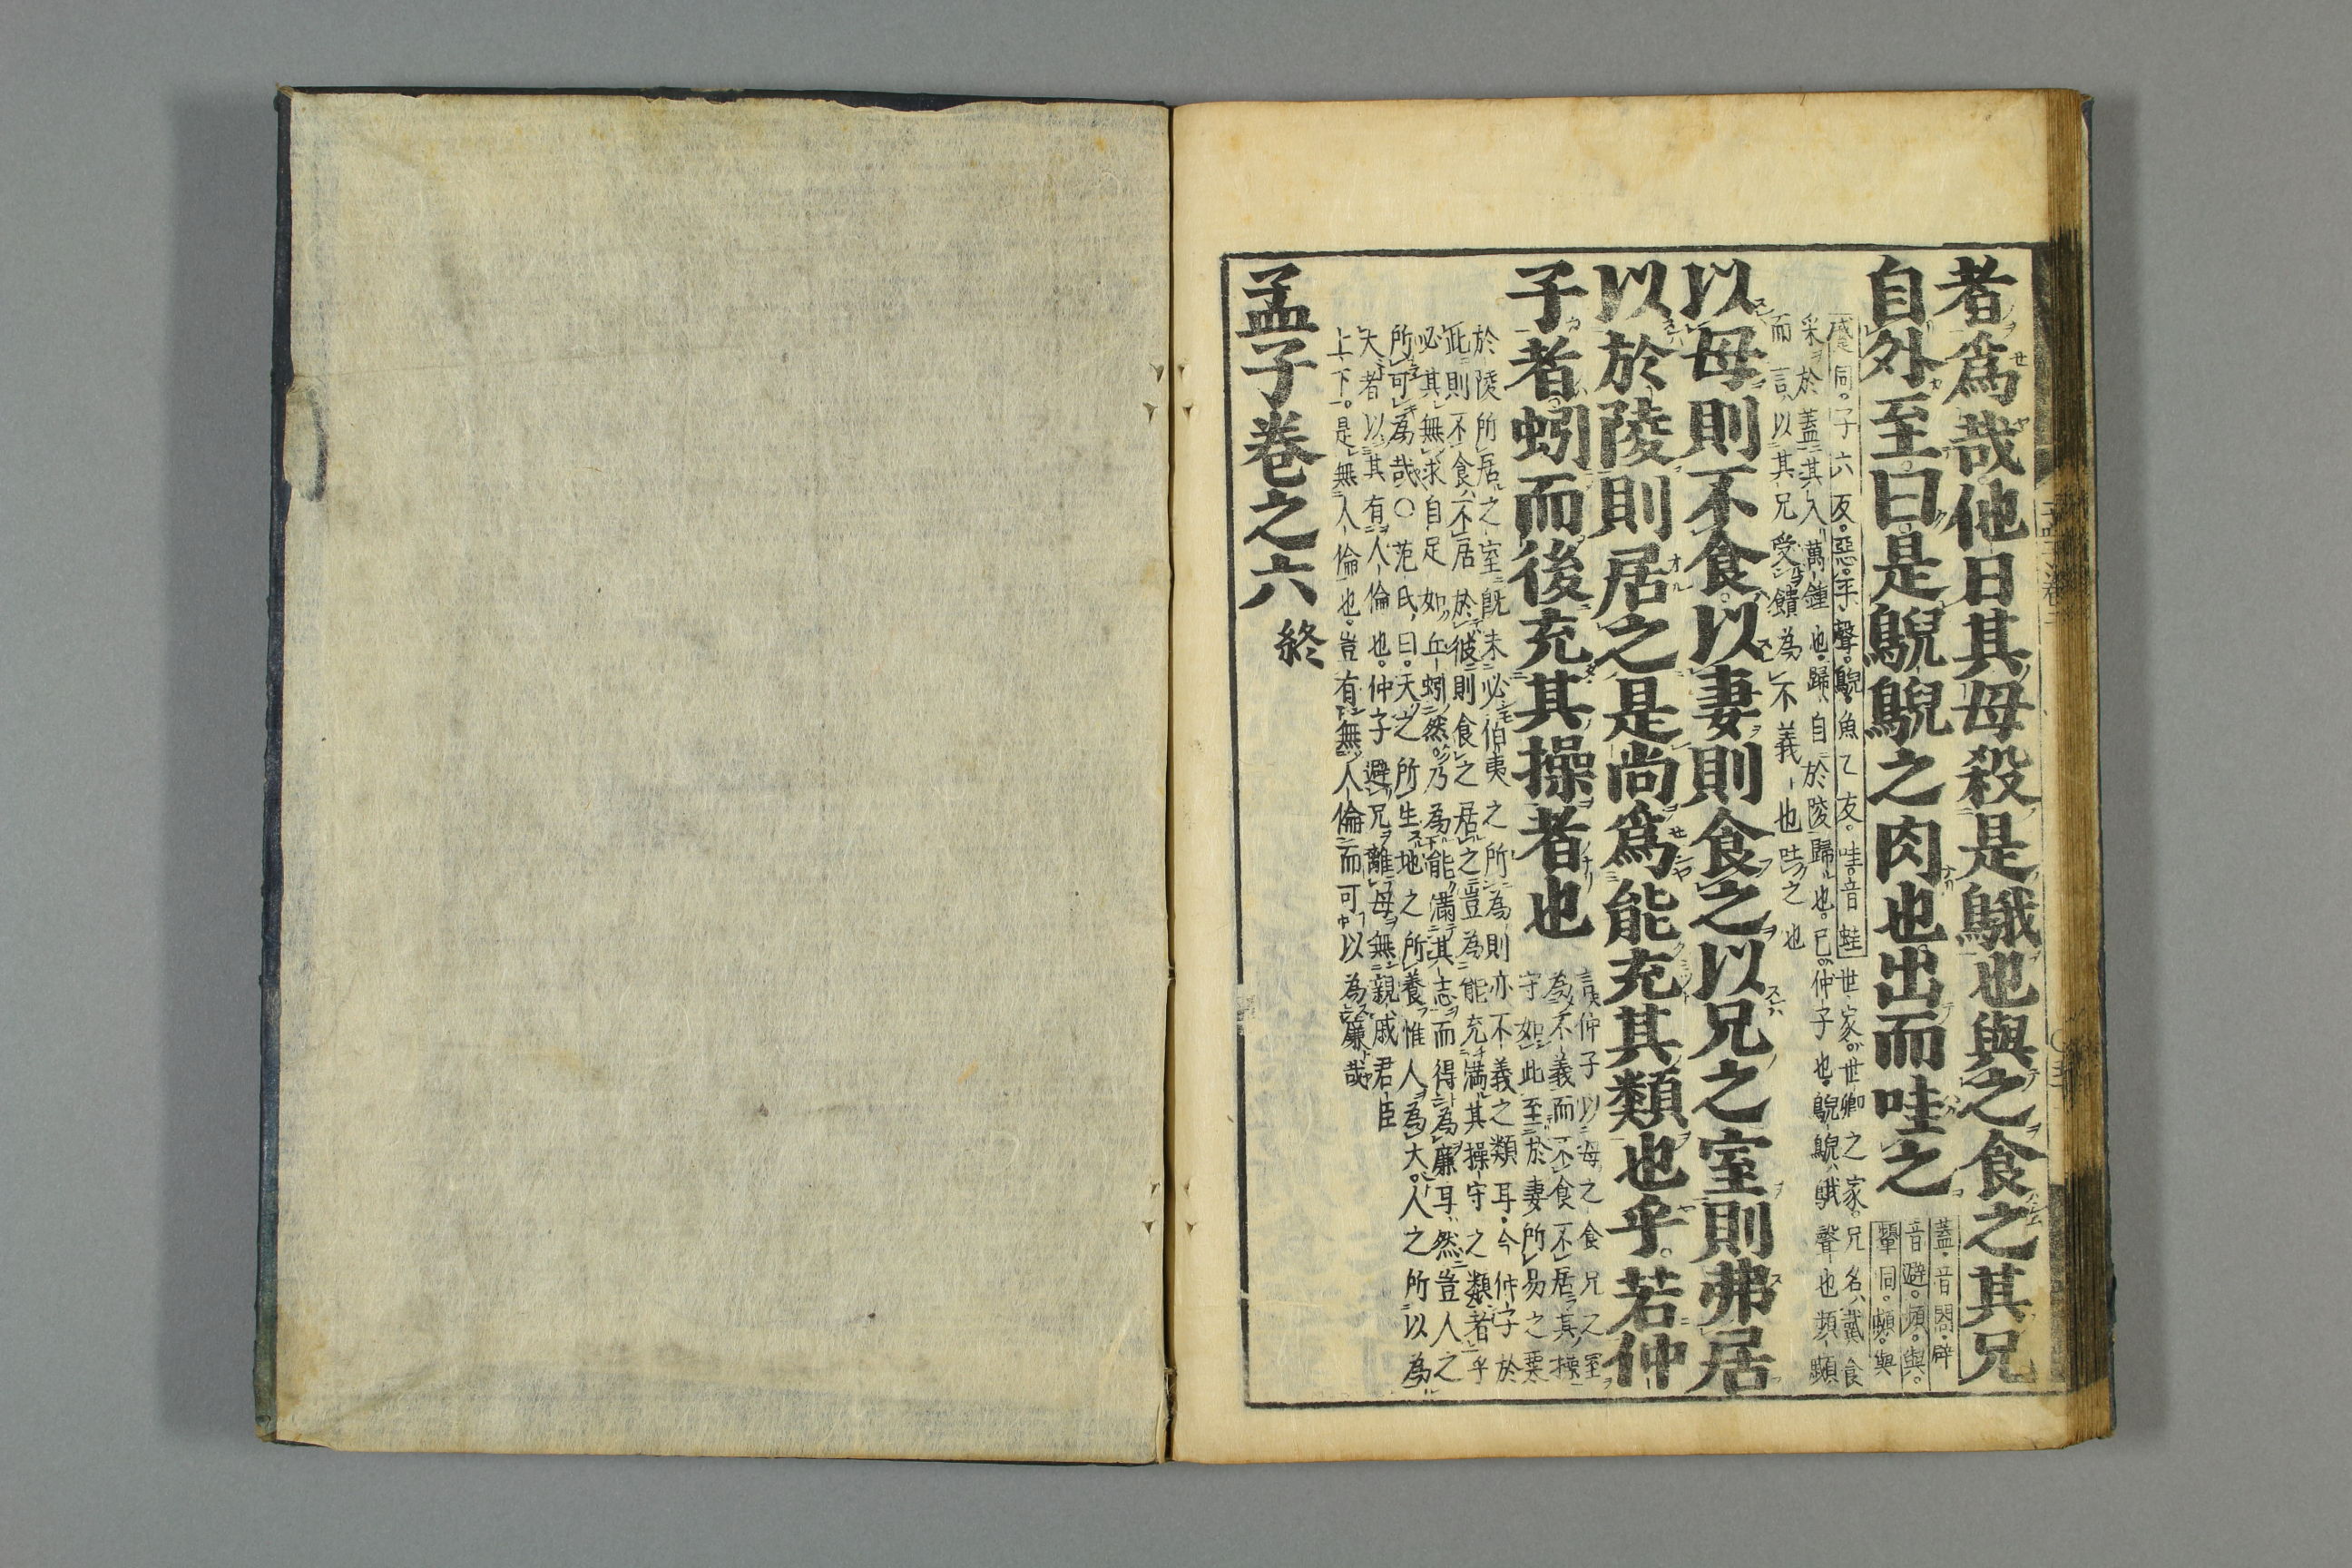 者爲哉他日其母殺是鵝也與之食之其兄
自外至曰是鶃鶃之肉也出而哇之
蓋音閤辟
音避頻與
顰同顣與
蹙同子六反惡平聲鶃魚乙反哇音蛙
世家世卿之家兄名戴食
采於蓋其入萬鍾也歸自於陵歸也已仲子也鶃鶃鵝聲也頻顣
而言以其兄受饋為不義也哇吐之也
以母則不食以妻則食之以兄之室則弗居
以於陵則居之是尚爲能充其類也乎若仲
子者蚓而後充其操者也
言仲子以母之食兄之室
為不義而不食不居其操
守如此至於妻所易之粟
於陵所居之室既未必伯夷之所為則亦不義之類耳今仲子於
此則不食不居於彼則食之居之豈為能充滿其操守之類者乎
必其無求自足如丘蚓然乃為能滿其志而得為廉耳然豈人之
所可為哉〇范氏曰天之所生地之所養惟人為大人之所以為
大者以其有人倫也仲子避兄離母無親戚君臣
上下是無人倫也豈有無人倫而可以為廉哉
孟子卷之六 終